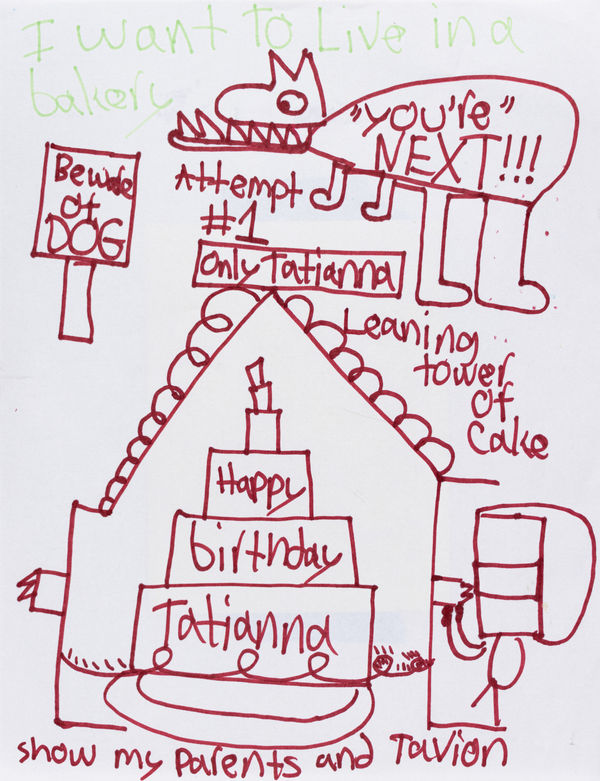 I want to Live in a
bakery
"you're"
NEXT!!!
Beware
of
DOG
Attempt
#1
Only Tatianna
Leaning
tower
of
Cake
Happy
birthday
Tatianna
show my parents and Tavion